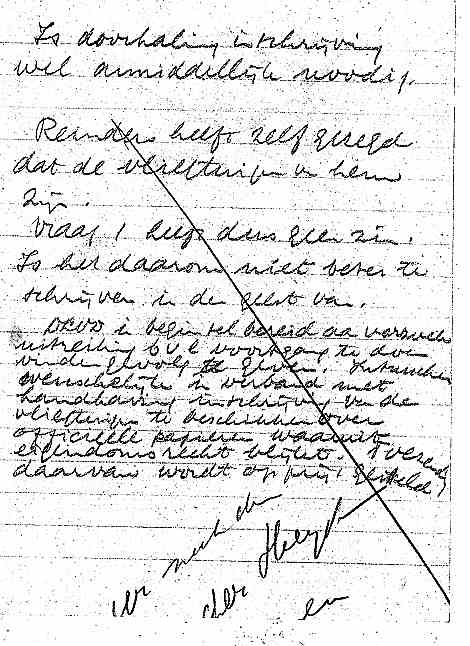 Is doorhaling inschrijving
wel onmiddellijk noodig.
Reinders heeft zelf gezegd
dat de vliegtuigen v hem
zijn.
Vraag 1 heeft dus geen zin.
Is het daarom niet beter te
schrijven in de geest van.
DEVO in beginsel bereid aa verzoek
uitreiking b.v.l. voortgang te doen
vinden gevolg te geven. Intusschen
wenschelijk in verband met
handhaving inschrijving van de
vliegtuigen te beschikken over
officieele papieren waaruit
eigendomsrecht blijkt. Toezending
daarvan wordt op prijs gesteld